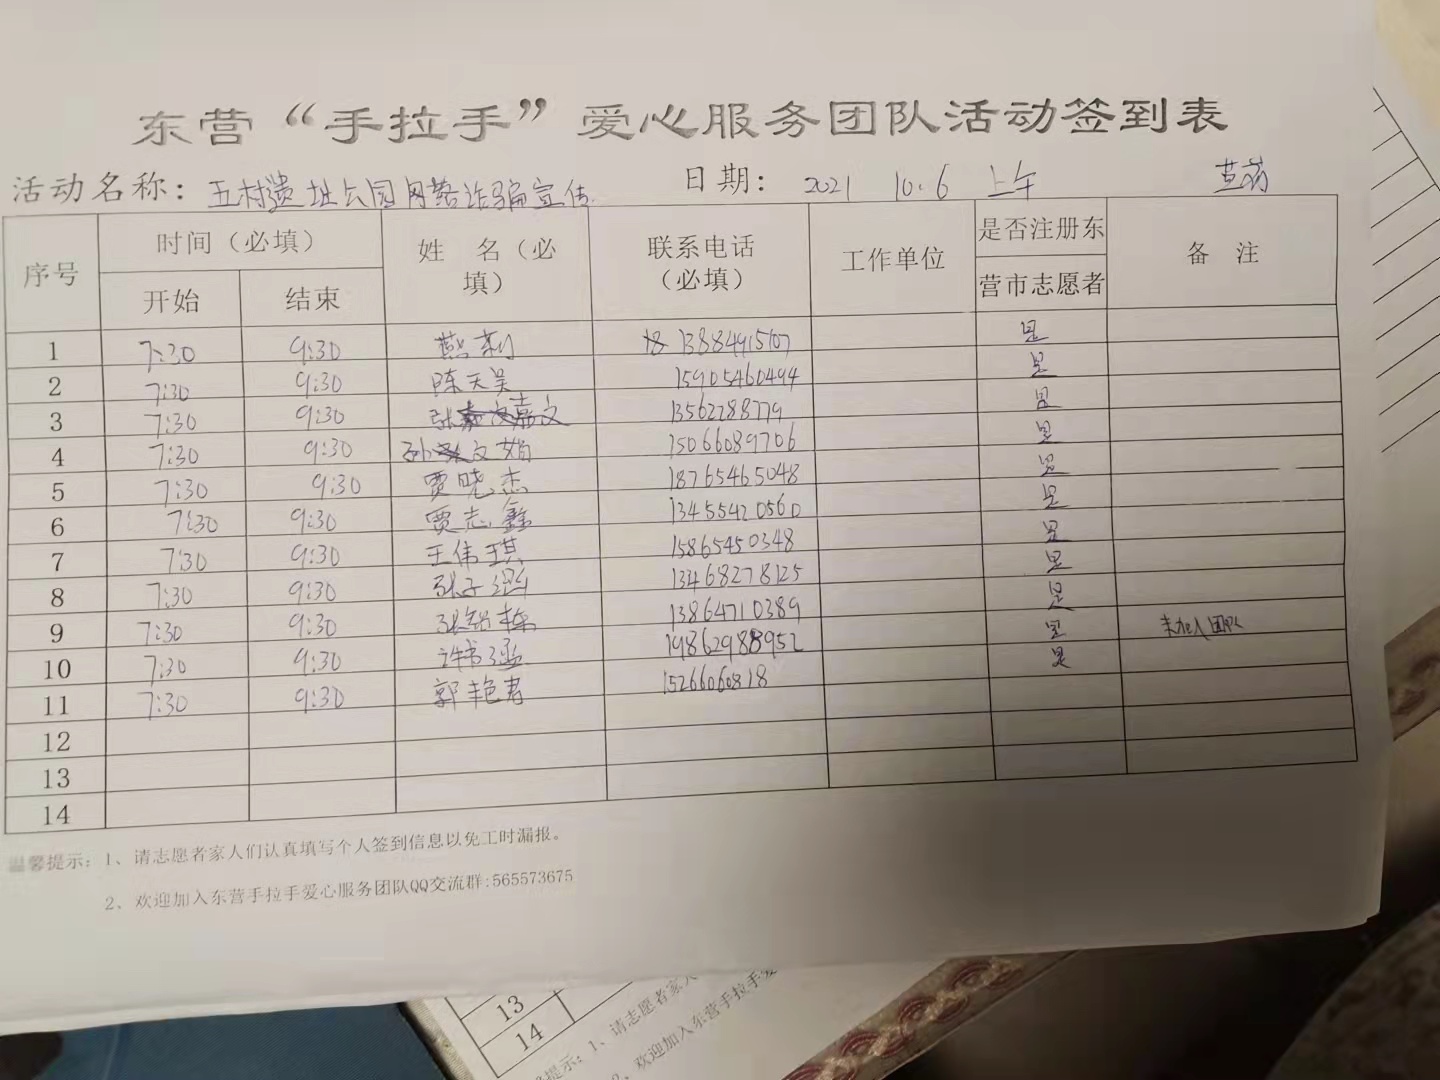 东营“手拉手”爱心服务团队活动签到表
活动名称：五村遗址公园网络诈骗宣传 日期：2021 10.6 上午
序号 时间（必填） 姓 名（必填） 联系电话（必填） 工作单位 是否注册东营市志愿者 备 注
开始 结束
1 7:30 9:30 燕 13884915107 是
2 7:30 9:30 陈天昊 15905460494 是
3 7:30 9:30 张嘉文 13562788779 是
4 7:30 9:30 孙文娟 15066089706 是
5 7:30 9:30 贾晓杰 18765465048 是
6 7:30 9:30 贾志鑫 13455420560 是
7 7:30 9:30 王伟琪 15865450348 是
8 7:30 9:30 张子 13468278125 是
9 7:30 9:30 张铭栋 13864710389 是
10 7:30 9:30 许书涵 19862988952 是 未加入团队
11 7:30 9:30 郭艳君 15266060818 是
12
13
14
温馨提示：1、请志愿者家人们认真填写个人签到信息以免工时漏报。
2、欢迎加入东营手拉手爱心服务团队QQ交流群:565573675
13
14
提示：1、请志愿者家人
2、欢迎加入东营手拉手爱